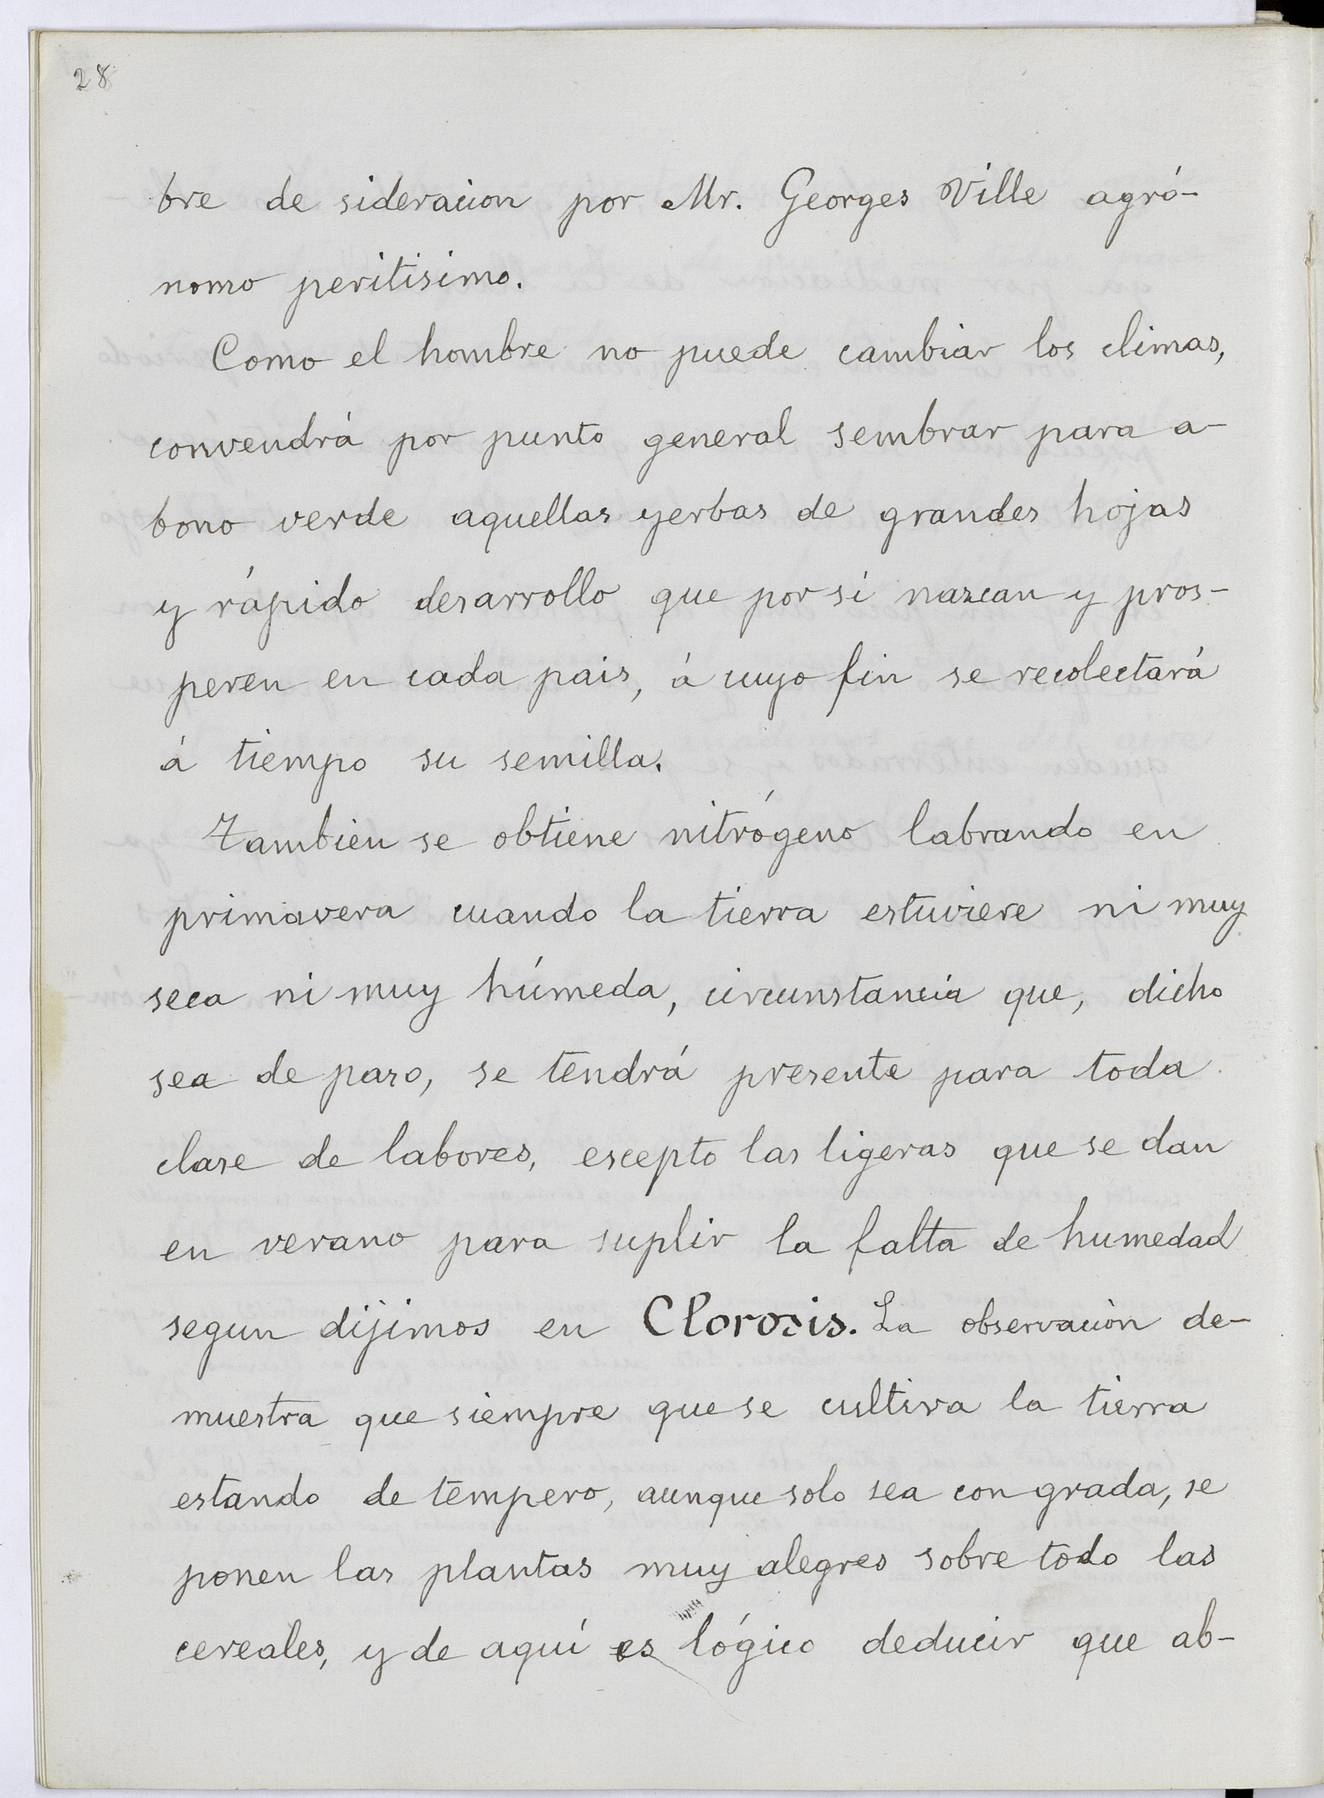 28
bre de sideracion por Mr. Georges Ville agró-
nomo peritisimo.
Como el hombre no puede cambiar los climas,
convendrá por punto general sembrar para a-
bono verde aquellas yerbas de grandes hojas
y rápido desarrollo que por sí nazcan y pros-
peren en cada pais, á cuyo fin se recolectará
á tiempo su semilla.
Tambien se obtiene nitrógeno labrando en
primavera cuando la tierra estuviere ni muy
seca ni muy húmeda, circunstancia que, dicho
sea de paso, se tendrá presente para toda
clase de labores, escepto las ligeras que se dan
en verano para suplir la falta de humedad
segun dijimos en Clorosis. La observación de-
muestra que siempre que se cultiva la tierra
estando de tempero, aunque solo sea con grada, se
ponen las plantas muy alegres sobre todo las
cereales, y de aquí es lógico deducir que ab-